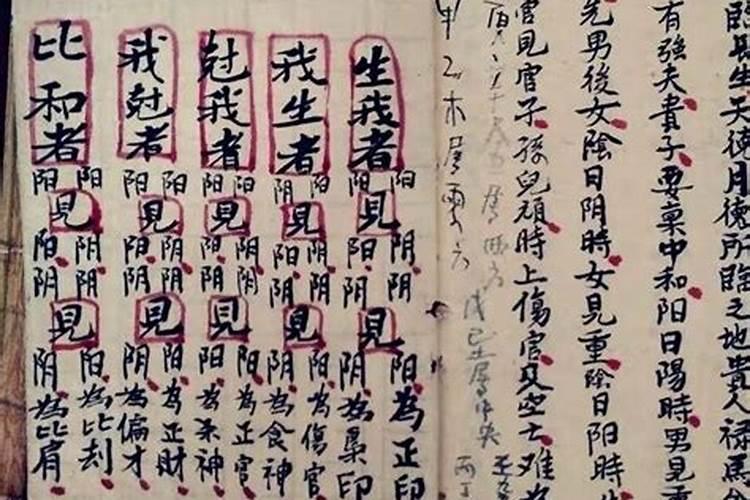 長生天德月德所臨之地貴人祿馬
有強夫貴子要稟中和阳日陽時男見
先男後女陰日阴時女見重陰日阳時
官見官子孫兒頑時上傷官又空亡难
戊己土居中央
甲乙木居
生我者
阳見阴阴見阳為正印
阳見阳阴見阴為梟印
我生者
阳見阴阴見阳為傷官
阴見阳阴見阴為食神
尅我者
阳見阴阴見阳為正官
阳見阳阴見阳為杀神
我尅者
阳見阴阴見阳為正財
阳見阳阴見阴為偏才
比和者
阳見阴阴見阳為比刦
阳見阳阴見阴為比肩